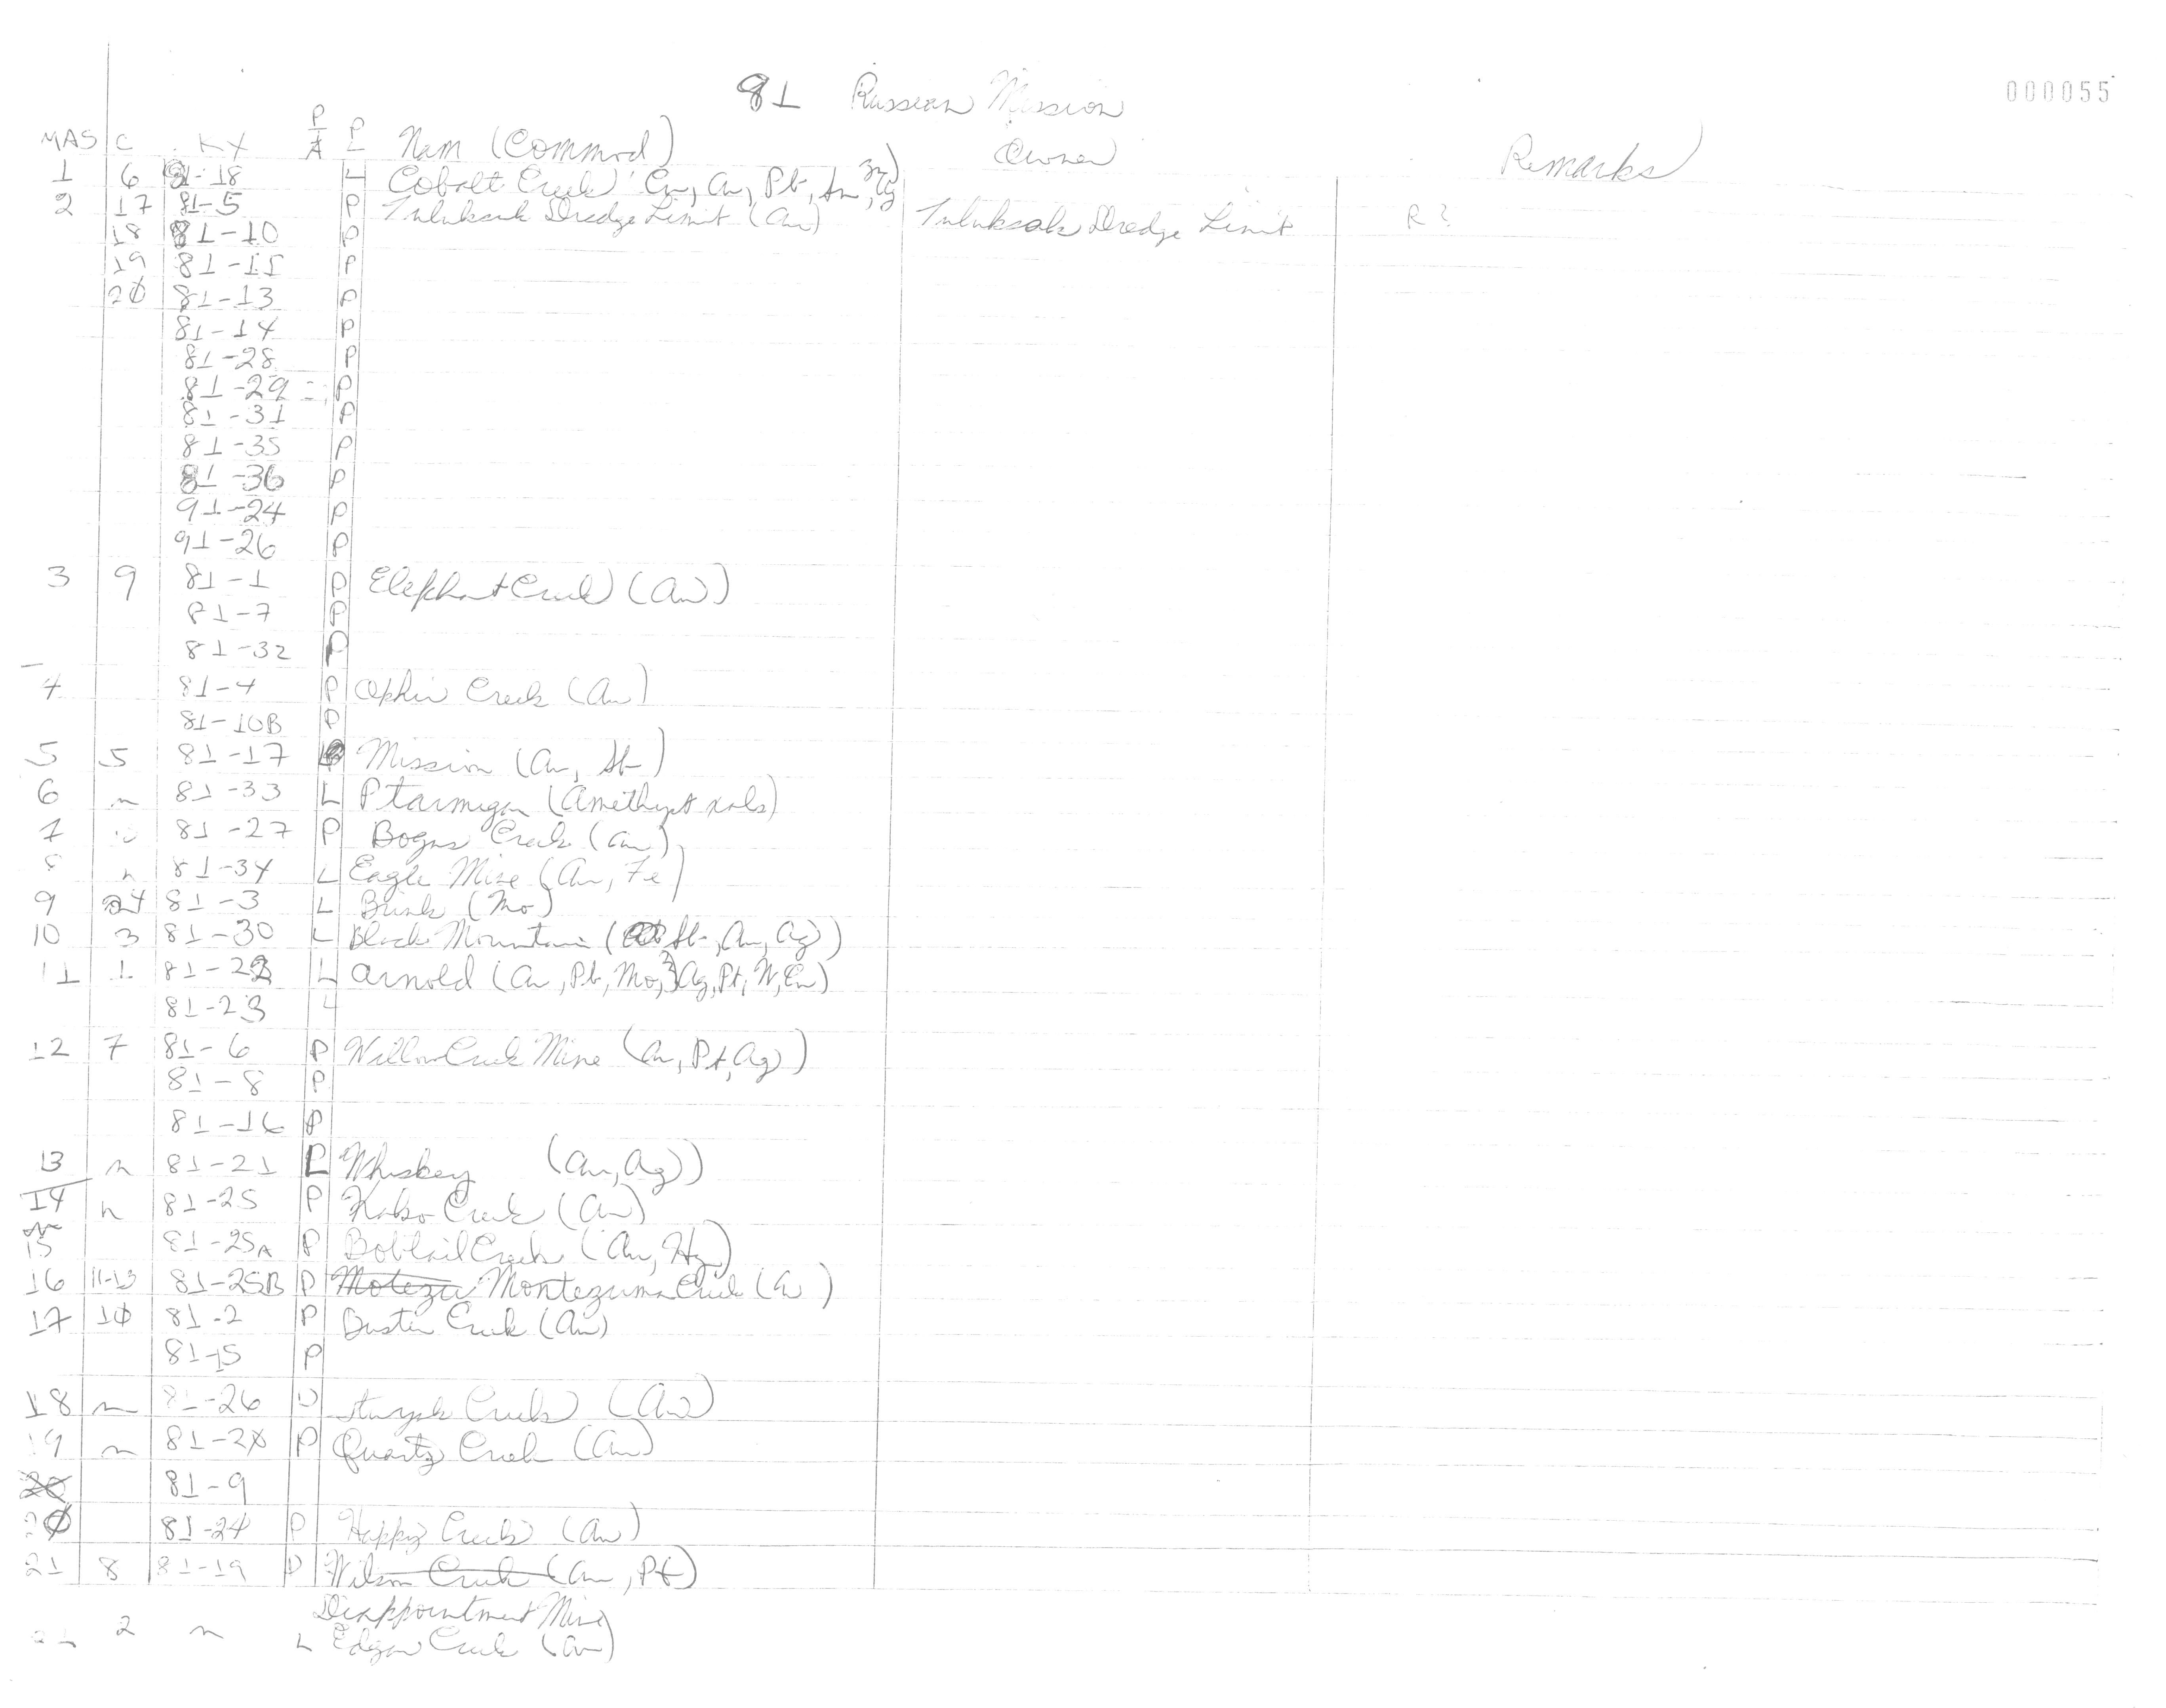 81 Russian Mission
000055
MAS C KX P/A P/L Nam (Commod) Owner Remarks
1 6 81-18 L Cobalt Creek
2 17 81-5 P Tuluksak Dredge Limit (Au) Tuluksak Dredge Limit R?
18 81-10 P
19 81-11 P
20 81-13 P
81-14 P
81-28 P
81-29 P
81-31 P
81-35 P
81-36 P
91-24 P
91-26 P
3 9 81-1 P Elephant Creek (Au)
81-7 P
81-32 P
4 81-4 P Ophir Creek (Au)
81-10B P
5 5 81-17 Mission (Au, Sb)
6 n 81-33 L Ptarmigan (Amethyst xals)
7 81-27 P Bogus Creek (Au)
8 n 81-34 L Eagle Mine (Au, Fe)
9 24 81-3 L (Mo)
10 3 81-30 L Black Mountain (Sb, Au, Ag)
11 1 81-22 L Arnold (Au, Pb, Mo, Ag, Pt, W, Cu)
81-23 L
12 7 81-6 P Willow Creek Mine (Au, Pt, Ag)
81-8 P
81-16 P
13 n 81-21 L Whiskey (Au, Ag)
14 n 81-25 P Creek (Au)
15 81-25A P Bobtail Creek (Au, Hg)
16 11-13 81-25B P Moteza Montezuma Creek (Au)
17 10 81-2 P Buster Creek (Au)
81-15 P
18 n 81-26 P Creek (Au)
19 n 81-20 P Quartz Creek (Au)
20 81-9
20 81-24 P Happy Creek (Au)
21 8 81-19 P Wilson Creek (Au, Pt)
Disappointment Mine
21 2 n L Edgar Creek (Au)